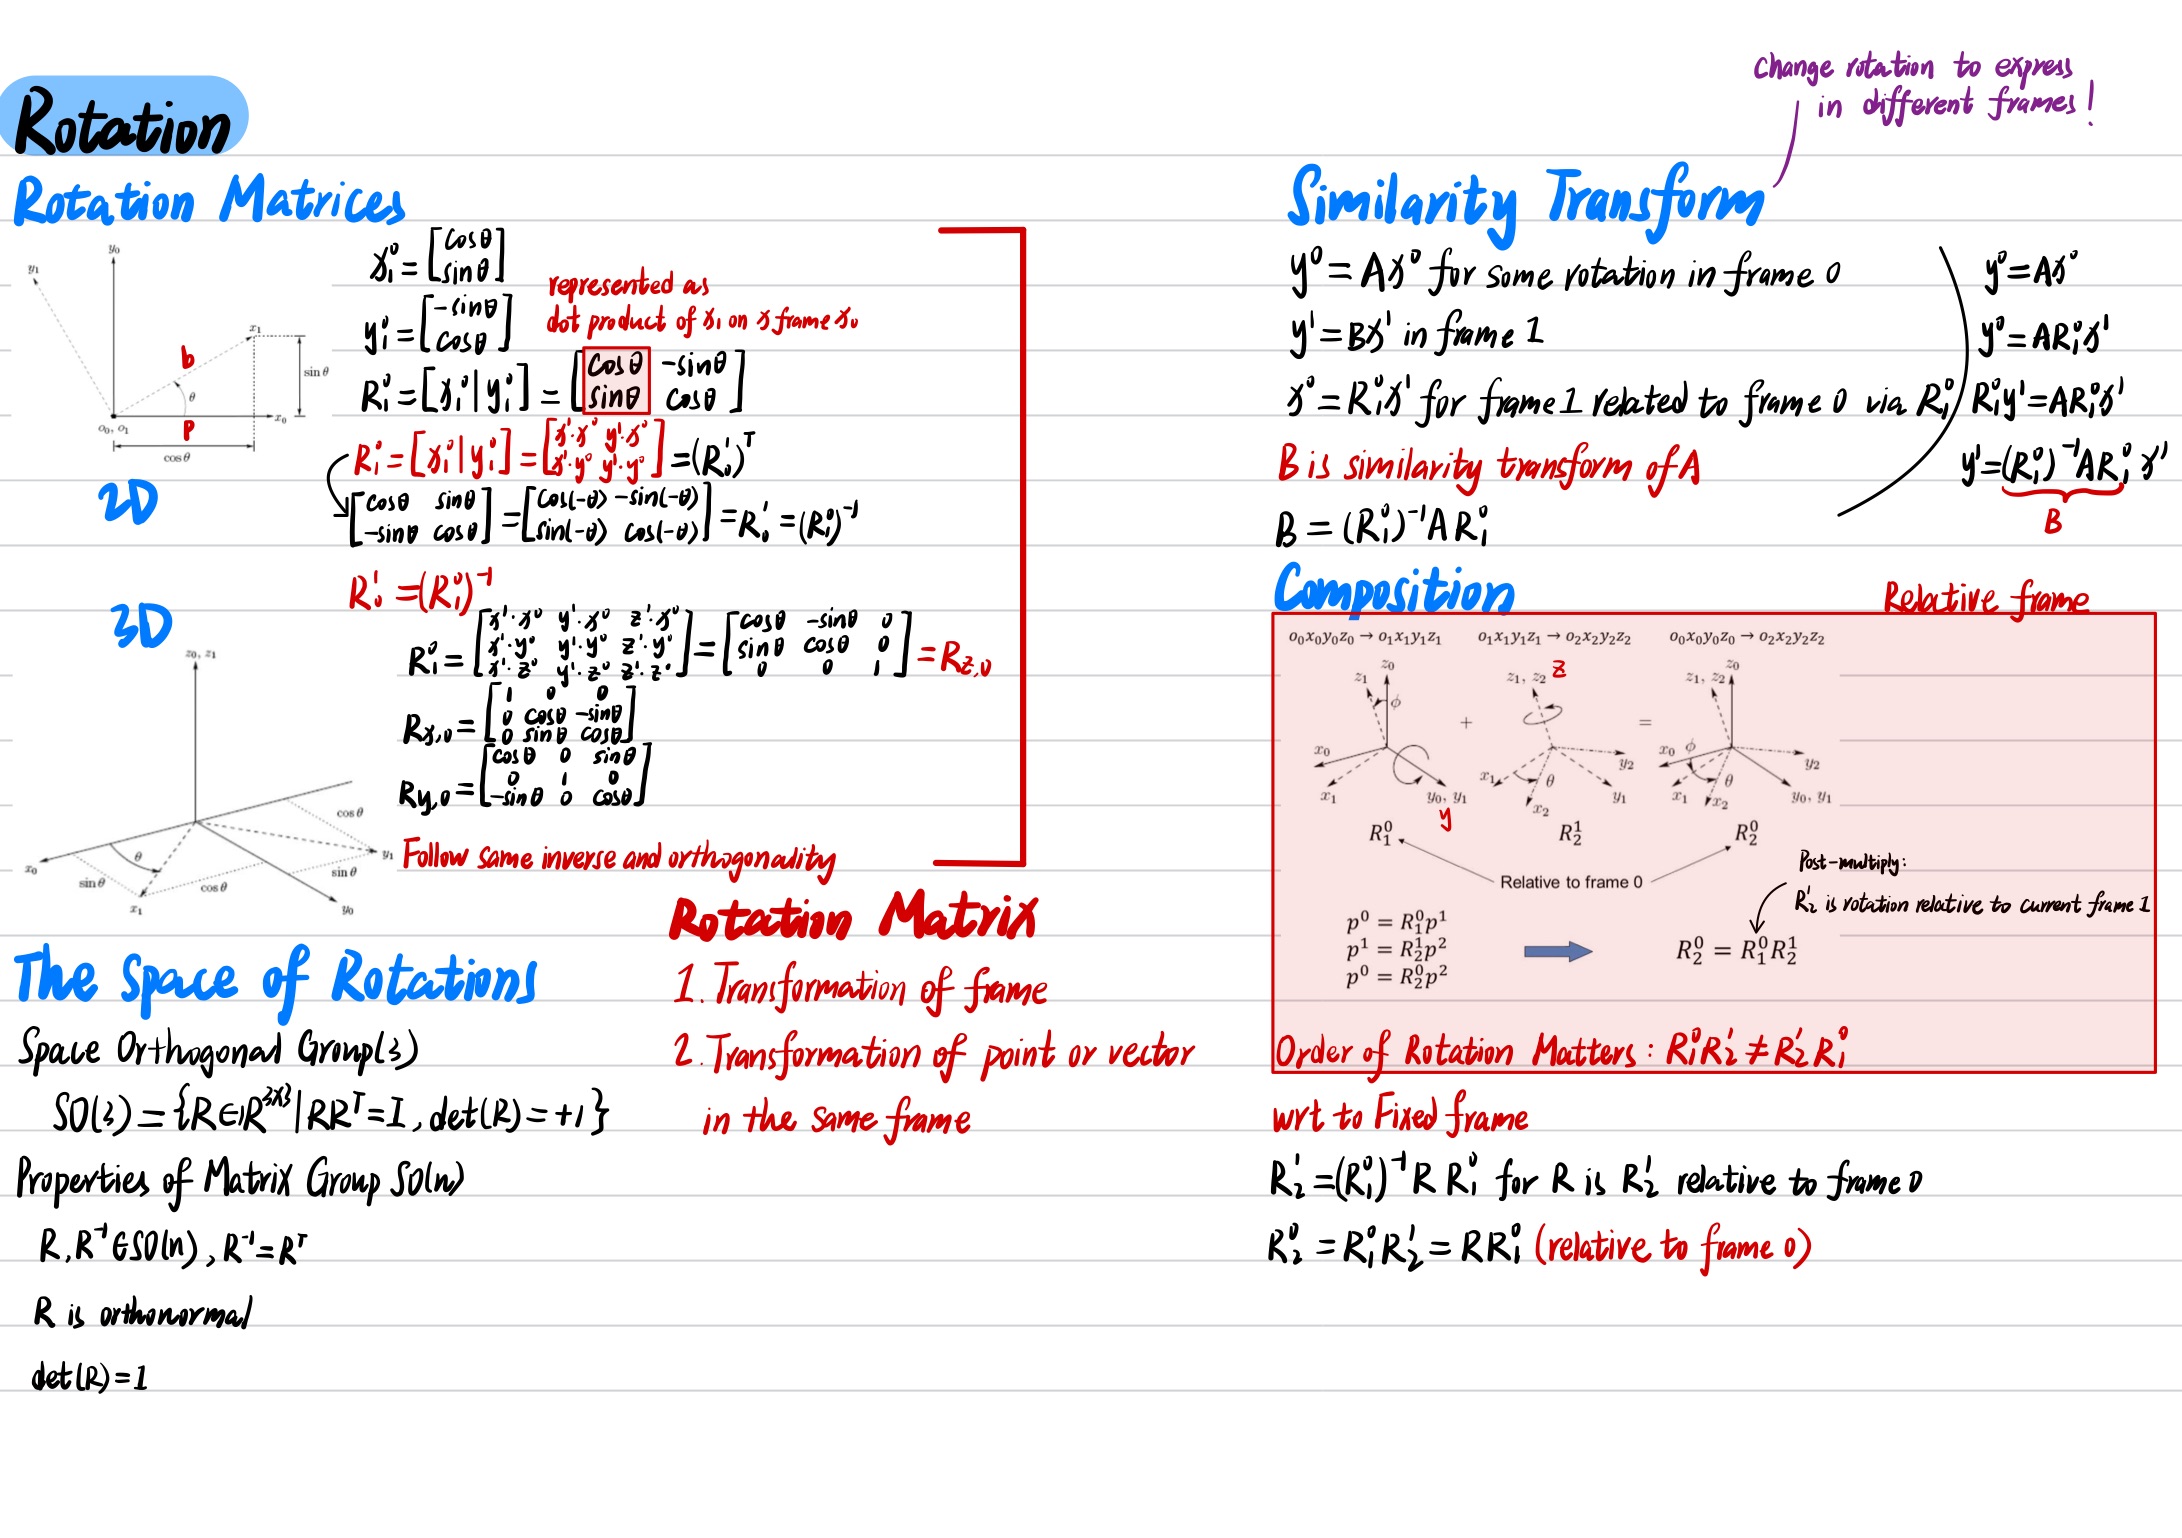 Rotation
Rotation Matrices
y₀
y₁
x₁
b
θ
sin θ
o₀, o₁
P
x₀
cos θ
2D
x₁⁰ = [cosθ; sinθ]
y₁⁰ = [-sinθ; cosθ]
represented as
dot product of x₁ on x frame x₀
R₁⁰ = [x₁⁰ | y₁⁰] = [cosθ -sinθ; sinθ cosθ]
R₁⁰ = [x₁⁰ | y₁⁰] = [x¹·x⁰ y¹·x⁰; x¹·y⁰ y¹·y⁰] = (R₀¹)ᵀ
[cosθ sinθ; -sinθ cosθ] = [cos(-θ) -sin(-θ); sin(-θ) cos(-θ)] = R₀¹ = (R₁⁰)⁻¹
R₀¹ = (R₁⁰)⁻¹
3D
z₀, z₁
cos θ
θ
y₁
x₀
sin θ
cos θ
sin θ
x₁
y₀
R₁⁰ = [x¹·x⁰ y¹·x⁰ z¹·x⁰; x¹·y⁰ y¹·y⁰ z¹·y⁰; x¹·z⁰ y¹·z⁰ z¹·z⁰] = [cosθ -sinθ 0; sinθ cosθ 0; 0 0 1] = R_z,θ
R_x,θ = [1 0 0; 0 cosθ -sinθ; 0 sinθ cosθ]
R_y,θ = [cosθ 0 sinθ; 0 1 0; -sinθ 0 cosθ]
Follow same inverse and orthogonality
Rotation Matrix
1. Transformation of frame
2. Transformation of point or vector
in the same frame
The Space of Rotations
Space Orthogonal Group(3)
SO(3) = {R ∈ ℝ³ˣ³ | RRᵀ = I, det(R) = +1}
Properties of Matrix Group SO(n)
R, R⁻¹ ∈ SO(n), R⁻¹ = Rᵀ
R is orthonormal
det(R) = 1
change rotation to express
in different frames!
Similarity Transform
y⁰ = Ax⁰ for some rotation in frame 0
y¹ = Bx¹ in frame 1
x⁰ = R₁⁰x¹ for frame 1 related to frame 0 via R₁⁰
B is similarity transform of A
B = (R₁⁰)⁻¹AR₁⁰
y⁰ = Ax⁰
y⁰ = AR₁⁰x¹
R₁⁰y¹ = AR₁⁰x¹
y¹ = (R₁⁰)⁻¹AR₁⁰x¹
B
Composition
Relative frame
o₀x₀y₀z₀ → o₁x₁y₁z₁
o₁x₁y₁z₁ → o₂x₂y₂z₂
o₀x₀y₀z₀ → o₂x₂y₂z₂
z₀
z₁
ϕ
x₀
x₁
y₀, y₁
y
+
z₁, z₂
z
x₁
θ
x₂
y₂
y₁
=
z₀
z₁, z₂
x₀
ϕ
θ
y₂
x₁
x₂
y₀, y₁
R₁⁰
R₂¹
R₂⁰
Relative to frame 0
Post-multiply:
R₂¹ is rotation relative to current frame 1
p⁰ = R₁⁰p¹
p¹ = R₂¹p²
p⁰ = R₂⁰p²
R₂⁰ = R₁⁰R₂¹
Order of Rotation Matters: R₁⁰R₂¹ ≠ R₂¹R₁⁰
wrt to Fixed frame
R₂¹ = (R₁⁰)⁻¹RR₁⁰ for R is R₂¹ relative to frame 0
R₂⁰ = R₁⁰R₂¹ = RR₁⁰ (relative to frame 0)